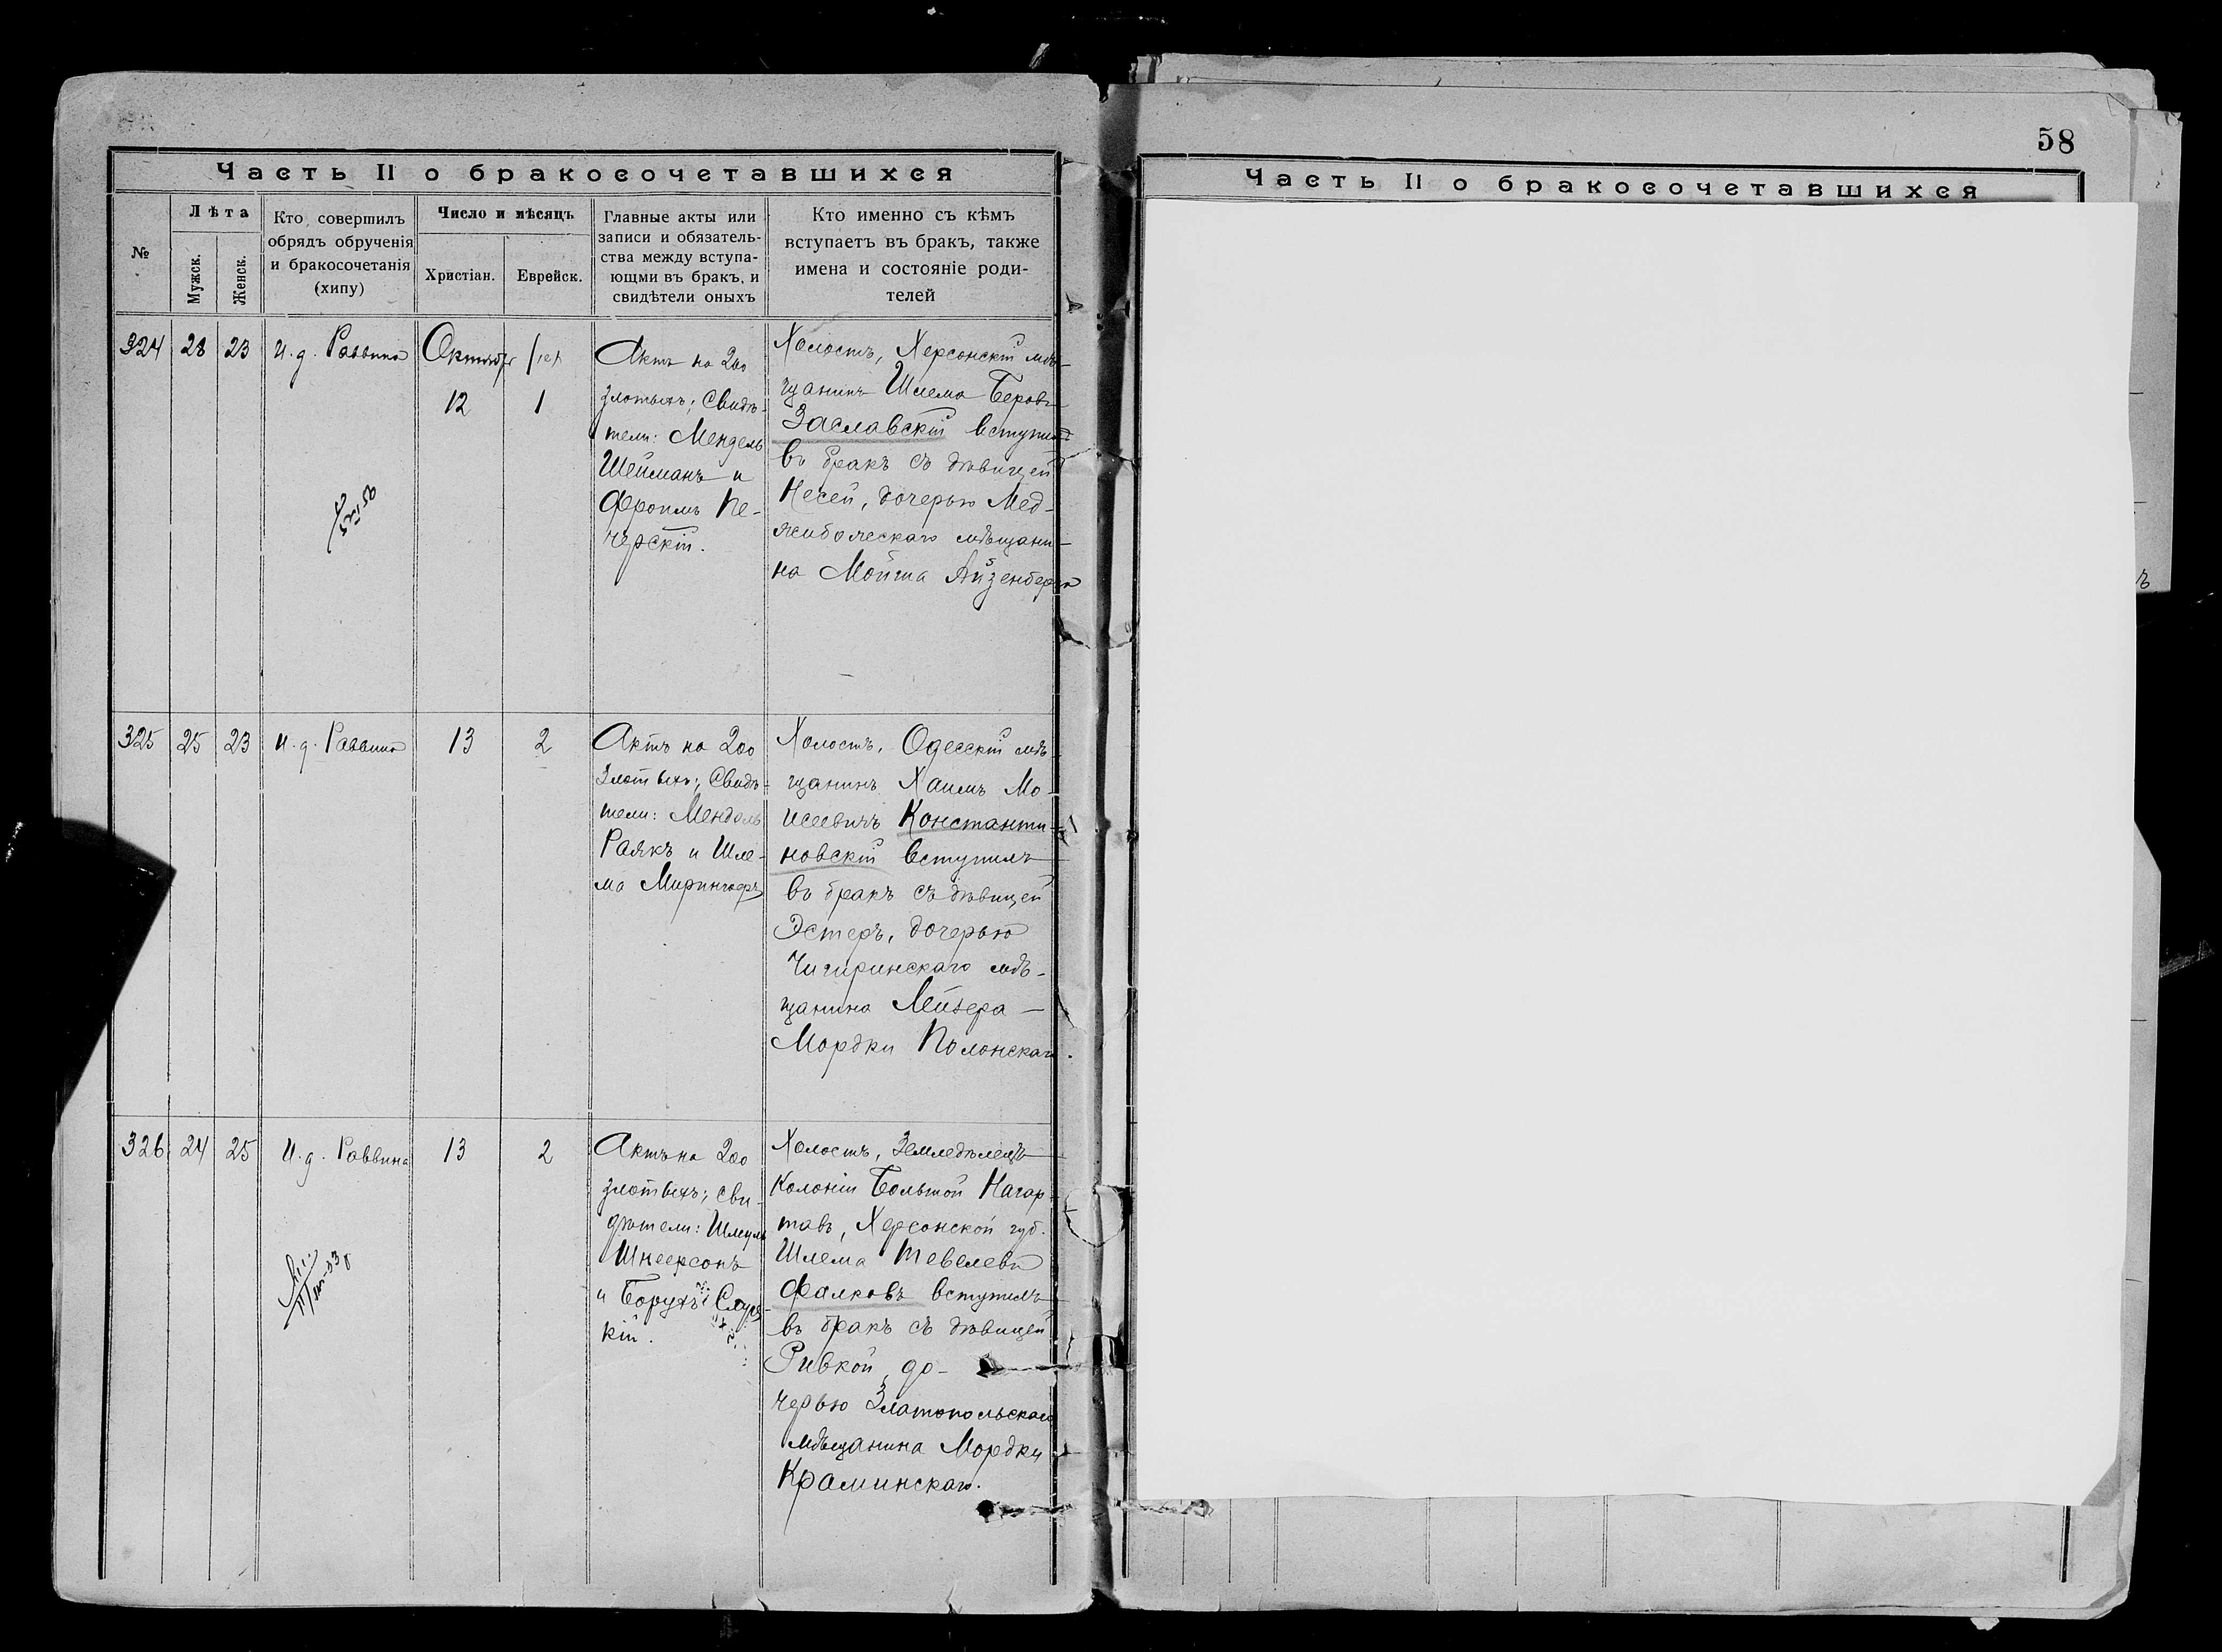 58
Часть II о бракосочетавшихся
№
Лѣта
Мужск.
Женск.
Кто совершилъ
обрядъ обрученія
и бракосочетанія
(хипу)
Число и мѣсяцъ
Христіан.
Еврейск.
Главные акты или
записи и обязатель-
ства между вступа-
ющми въ бракъ, и
свидѣтели оныхъ
Кто именно съ кѣмъ
вступаетъ въ бракъ, также
имена и состояніе роди-
телей
324 28 23 И.д. Раввина
Октября
12 1
Актъ на 200
злотыхъ; Свидѣ-
тели: Мендель
Шейманъ и
Фроимъ Пе-
черскій.
Холостъ, Херсонскій мѣ-
щанинъ Шлема Беровъ
Заславскій вступилъ
въ бракъ съ дѣвицей
Несей, дочерью Мед-
жибожскаго мѣщани-
на Мойша Айзенберга
325 25 23 И.д. Раввина 13 2
Актъ на 200
Злотыхъ; Свидѣ-
тели: Мендель
Раякъ и Шле-
ма Мирингофъ
Холостъ, Одесскій мѣ-
щанинъ Хаимъ Мо-
исеевичъ Константи-
новскій вступилъ
въ бракъ съ дѣвицей
Эстеръ, дочерью
Чигиринскаго мѣ-
щанина Лейзера-
Мордки Полонскаго.
326 24 25 И.д. Раввина 13 2
Актъ на 200
злотыхъ; сви-
дѣтели: Шмуль
Шнеерсонъ
и Борухъ Слуц-
кій.
Холостъ, Земледѣлецъ
Колоніи Большой Нагар-
тавъ, Херсонской губ.
Шлема Тевелевъ
Фалковъ вступилъ
въ бракъ съ дѣвицей
Ривкой, до-
черью Златопольскаго
мѣщанина Мордки
Краминскаго.
Часть II о бракосочетавшихся